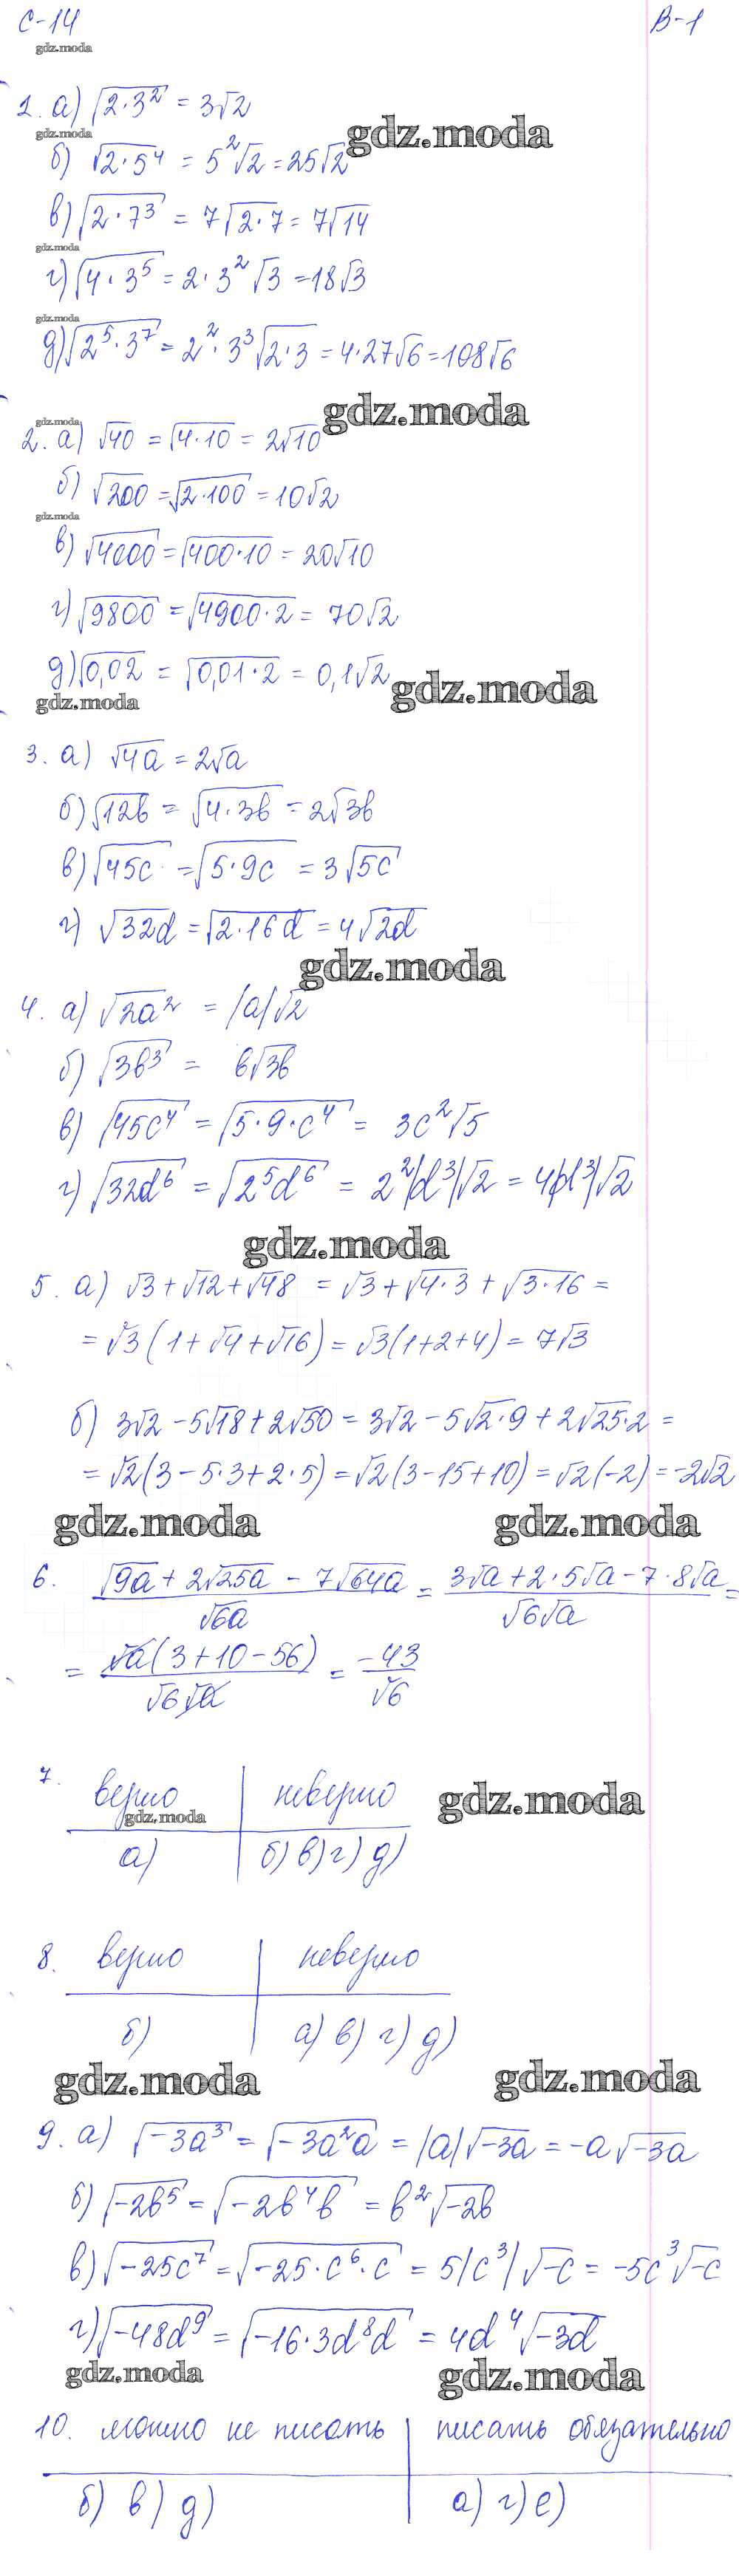 С-14 В-1
gdz.moda
1. а) √(2·3²) = 3√2
gdz.moda
gdz.moda
б) √(2·5⁴) = 5²√2 = 25√2
в) √(2·7³) = 7√(2·7) = 7√14
gdz.moda
г) √(4·3⁵) = 2·3²√3 = 18√3
gdz.moda
д) √(2⁵·3⁷) = 2²·3³√(2·3) = 4·27√6 = 108√6
gdz.moda
gdz.moda
2. а) √40 = √(4·10) = 2√10
б) √200 = √(2·100) = 10√2
gdz.moda
в) √4000 = √(400·10) = 20√10
г) √9800 = √(4900·2) = 70√2
д) √0,02 = √(0,01·2) = 0,1√2
gdz.moda
gdz.moda
3. а) √4a = 2√a
б) √12b = √(4·3b) = 2√3b
в) √45c = √(5·9c) = 3√5c
г) √32d = √(2·16d) = 4√2d
gdz.moda
4. а) √2a² = |a|√2
б) √3b³ = b√3b
в) √45c⁴ = √(5·9·c⁴) = 3c²√5
г) √32d⁶ = √(2⁵d⁶) = 2²|d³|√2 = 4|d³|√2
gdz.moda
5. а) √3 + √12 + √48 = √3 + √(4·3) + √(3·16) =
= √3(1 + √4 + √16) = √3(1+2+4) = 7√3
б) 3√2 - 5√18 + 2√50 = 3√2 - 5√(2·9) + 2√(25·2) =
= √2(3 - 5·3 + 2·5) = √2(3-15+10) = √2(-2) = -2√2
gdz.moda gdz.moda
6. (√9a + 2√25a - 7√64a)/√6a = (3√a + 2·5√a - 7·8√a)/(√6√a) =
= √a(3+10-56)/(√6√a) = -43/√6
7. верно | неверно
gdz.moda
gdz.moda
а) | б) в) г) д)
8. верно | неверно
б) | а) в) г) д)
gdz.moda gdz.moda
9. а) √(-3a³) = √(-3a²a) = |a|√(-3a) = -a√(-3a)
б) √(-2b⁵) = √(-2b⁴b) = b²√(-2b)
в) √(-25c⁷) = √(-25·c⁶·c) = 5|c³|√(-c) = -5c³√(-c)
г) √(-48d⁹) = √(-16·3d⁸d) = 4d⁴√(-3d)
gdz.moda gdz.moda
10. можно не писать | писать обязательно
б) в) д) | а) г) е)